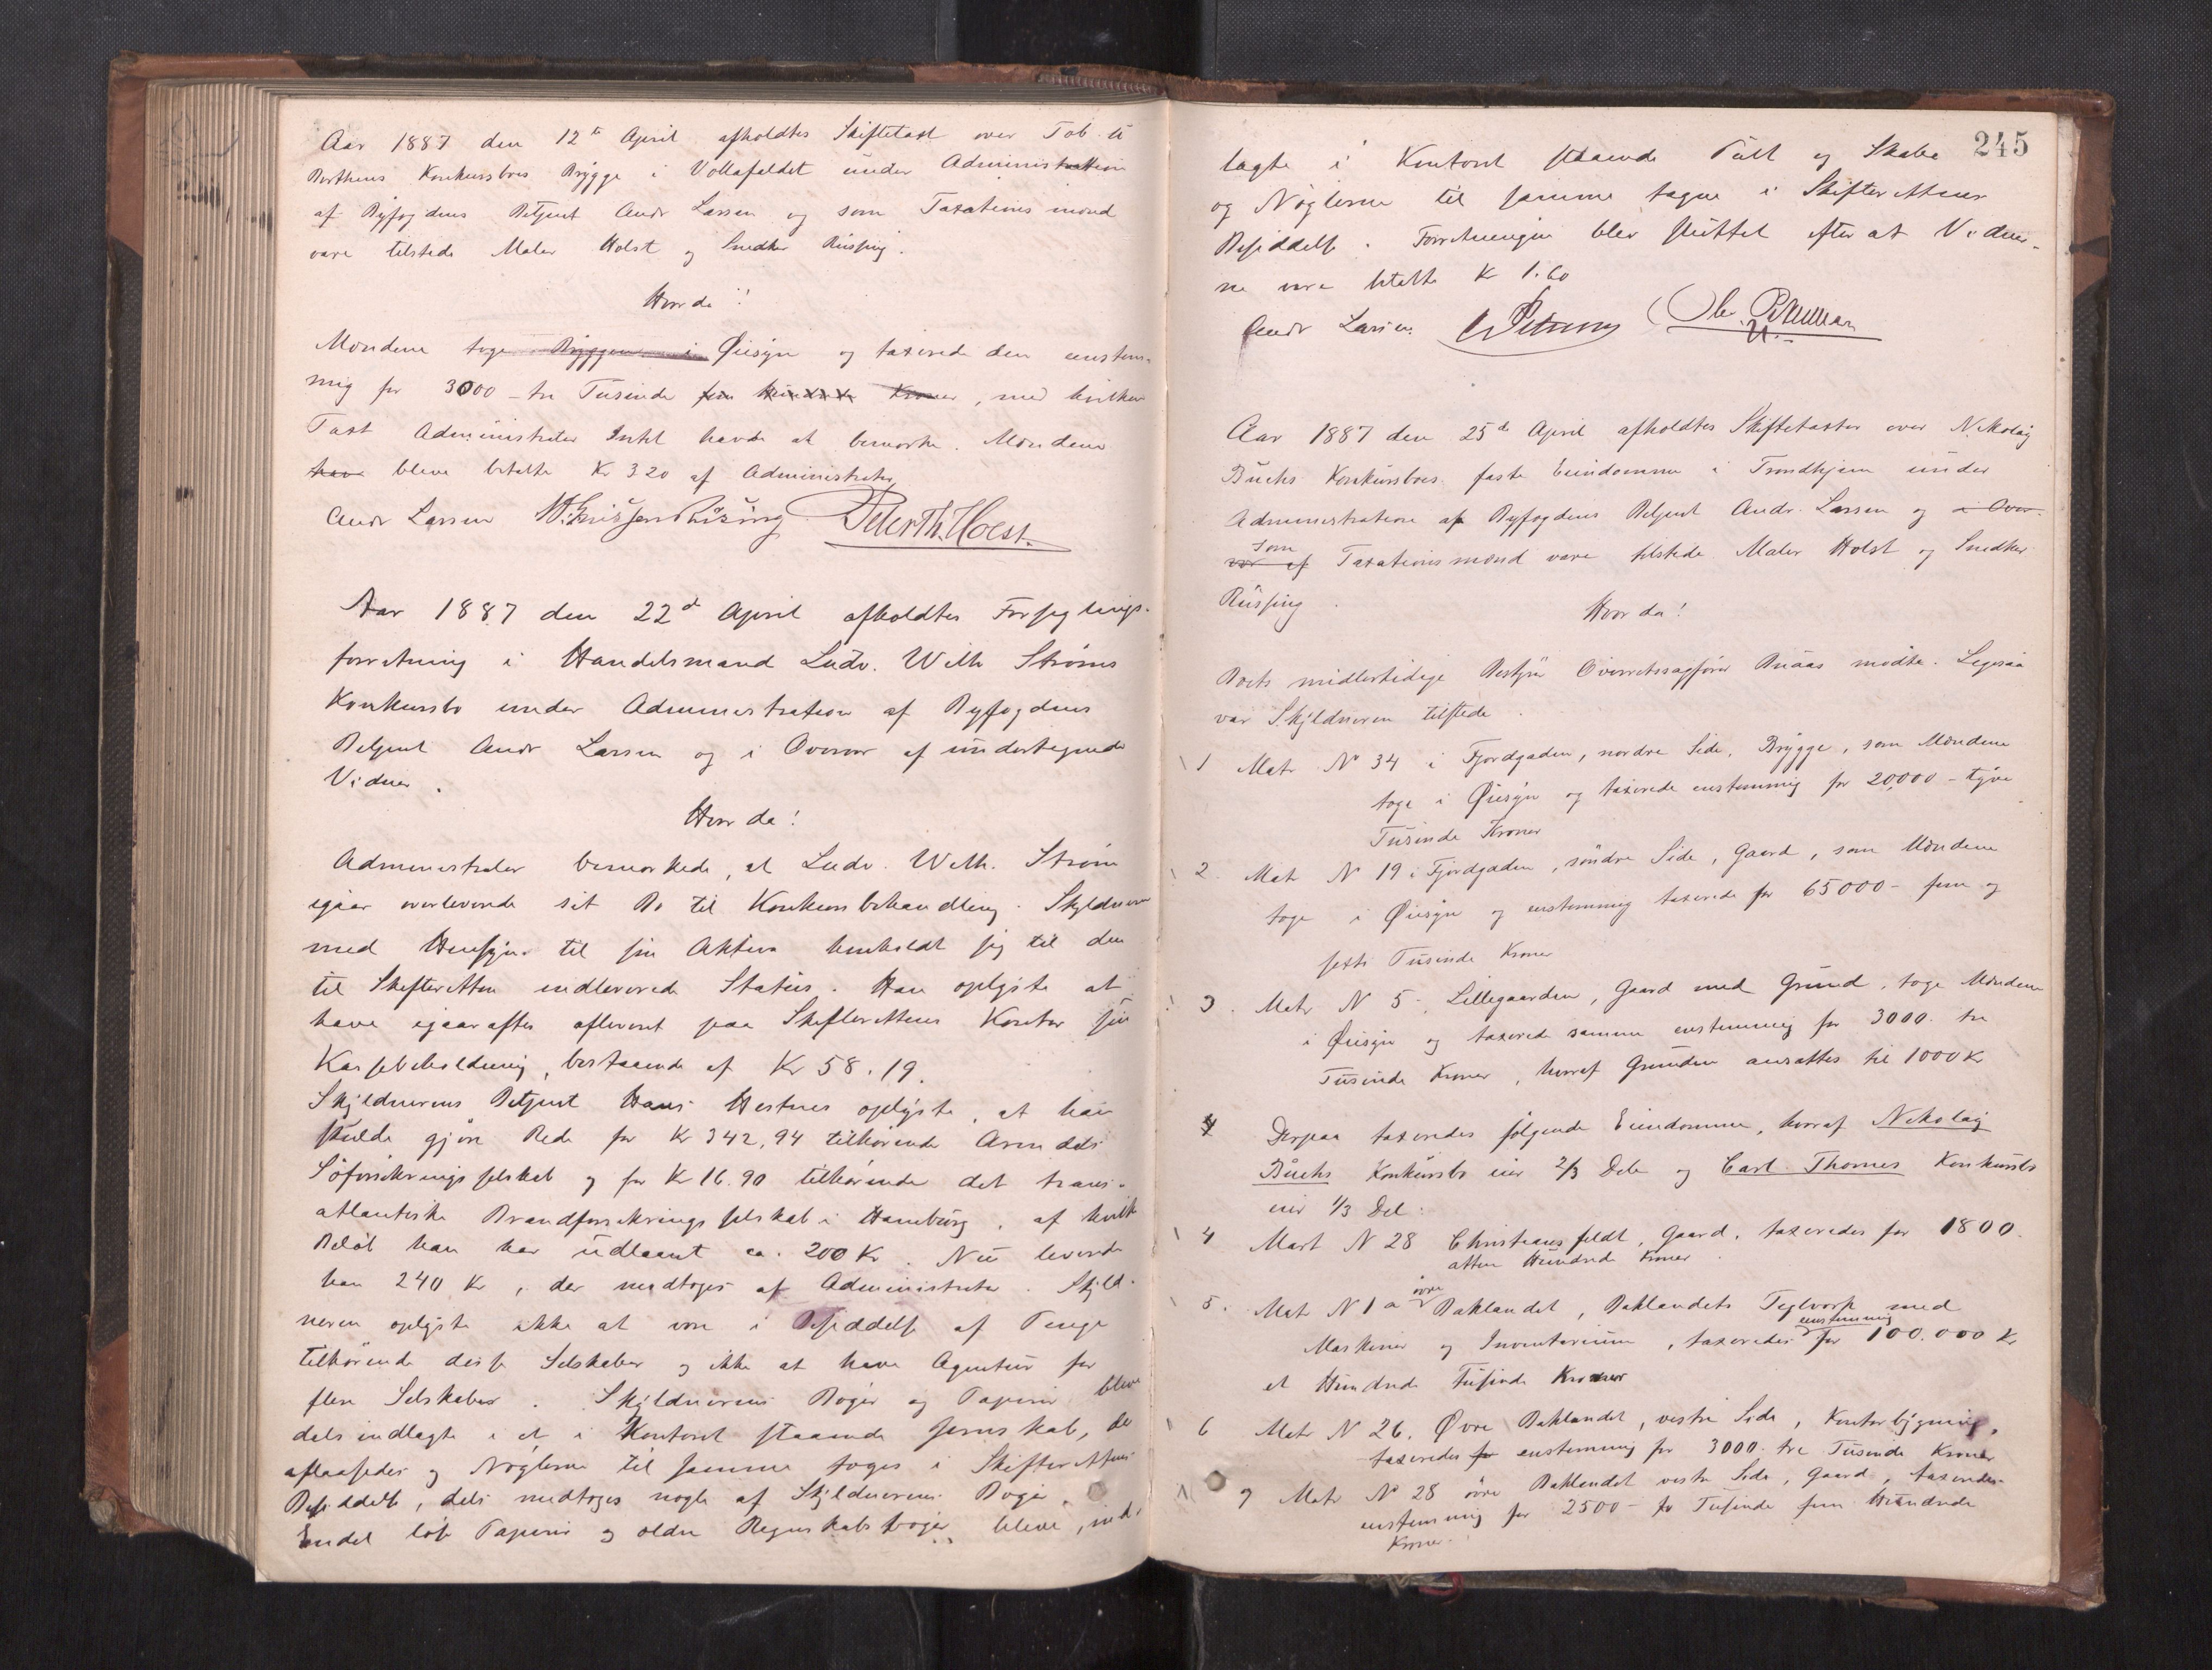 Aar 1887 den 12te April afholdtes Skiftetaxt over Tob. U
Berthens Konkursboes Brygge i Vollafaldet under Administration
af Byfogdens Betjent Andr Larsen og som Taxationsmænd
vare tilstede Maler Holst og Snedker Russing.
Hvorda!
Mændene toge Byggen i Øiesyn og taxerede den enstem-
mig for 3000 - tre Tusinde fem hundrede Kroner, med hvilken
Taxt Administrator Intet havde at bemærke. Mændene
have bleve betalte Kr 3 20 af Administrator
Andr Larsen Peter Th. Holst.
Aar 1887 den 22d April afholdtes Forseglings-
forretning i Handelsmand Ludv. Wilh Strøms
Konkursbo under Administration af Byfogdens
Betjent Andr Larsen og i Overvær af undertegnede
Vidner.
Hvor da!
Administrator bemærkede, at Ludv. Wilh. Strøm
igaar overleverede sit Bo til Konkursbehandling. Skyldneren
med Hensyn til sin Aktiva henholdt sig til den
til Skifteretten indleverede Status. Han oplyste at
have igaaraftes afleveret paa Skifterettens Kontor sin
Kassebeholdning, bestaaende af Kr 58.19.
Skyldnerens Betjent Hans Hestnes oplyste, at han
skulde gjøre Rede for Kr 342,94 tilhørende Arendals
Søforsikringsselskab og for Kr 16.90 tilhørende det trans-
atlantiske Brandforsikringsselskab i Hamburg, af hvilke
Beløb han har udlaant ca. 200 Kr. Nu leverede
han 240 Kr, der modtoges af Administrator. Skyld-
neren oplyste ikke at være i Besiddelse af Penge
tilhørende disse Selskaber og ikke at have Agentur for
flere Selskaber. Skyldnerens Bøger og Papirer bleve
dels indlagte i et i Kontoret staaende Jernskab, der
aflaasedes og Nøglerne til samme toges i Skifterettens
Besiddelse, dels medtoges nogle af Skyldnerens Bøger.
Endel løse Papirer og ældre Regnskabsbøger bleve ind-
245
lagte i Kontoret staaende Pult og Skabe
og Nøglerne til samme tagne i Skifterettens
Besiddelse. Forretningen blev sluttet efter at Vidner-
ne vare betalte K 1.60
Andr Larsen.
Aar 1887 den 25de April afholdtes Skiftetaxter over Nikolay
Buchs Konkursboes faste Eiendomme i Trondhjem under
Administration af Byfogdens Betjent Andr. Larsen og i Over-
som
vær af Taxationsmænd vare tilstede Maler Holst og Snedker
Russing.
Hvor da!
Boets midlertidige Bestyrer Overretssagfører Buaas mødte. Ligesaa
var Skyldneren tilstede.
1 Matr No 34 i Fjordgaden, nordre Side, Brygge, som Mændene
toge i Øiesyn og taxerede enstemmig for 20,000 - tyve
Tusinde Kroner
2. Matr No 19 i Fjordgaden, søndre Side, Gaard, som Mændene
toge i Øiesyn og enstemmig taxerede for 65000 - fem og
sexti Tusinde Kroner
3. Matr N 5. Lillegaarden, Gaard med Grund, toge Mændene
i Øiesyn og taxered samme enstemmig for 3000. tre
Tusinde Kroner, hvoraf Grunden ansattes til 1000 Kr
4 Derpaa taxeredes følgende Eiendomme, hvoraf Nikolay
Buchs Konkursbo eier 2/3 Dele og Carl Thornes Konkursbo
eier 1/3 Del:
4 Mart N 28 Christiansfeldt, Gaard, taxeredes for 1800.
atten Hundrede Kroner.
øvre
5. Matr N 1 a Baklandet, Baklandets Teglværk med
enstemmig
Maskiner og Inventarium, taxeredes for 100.000 Kr
et Hundrede Tusinde Kroner
6 Matr N 26. Øvre Baklandet, vestre Side, Kontorbygning,
taxeredes for enstemmig for 3000. tre Tusinde Kroner
7 Matr No 28 øvre Baklandet vestre Side, Gaard, taxeredes
enstemmig for 2500 - to Tusinde fem Hundrede
Kroner.